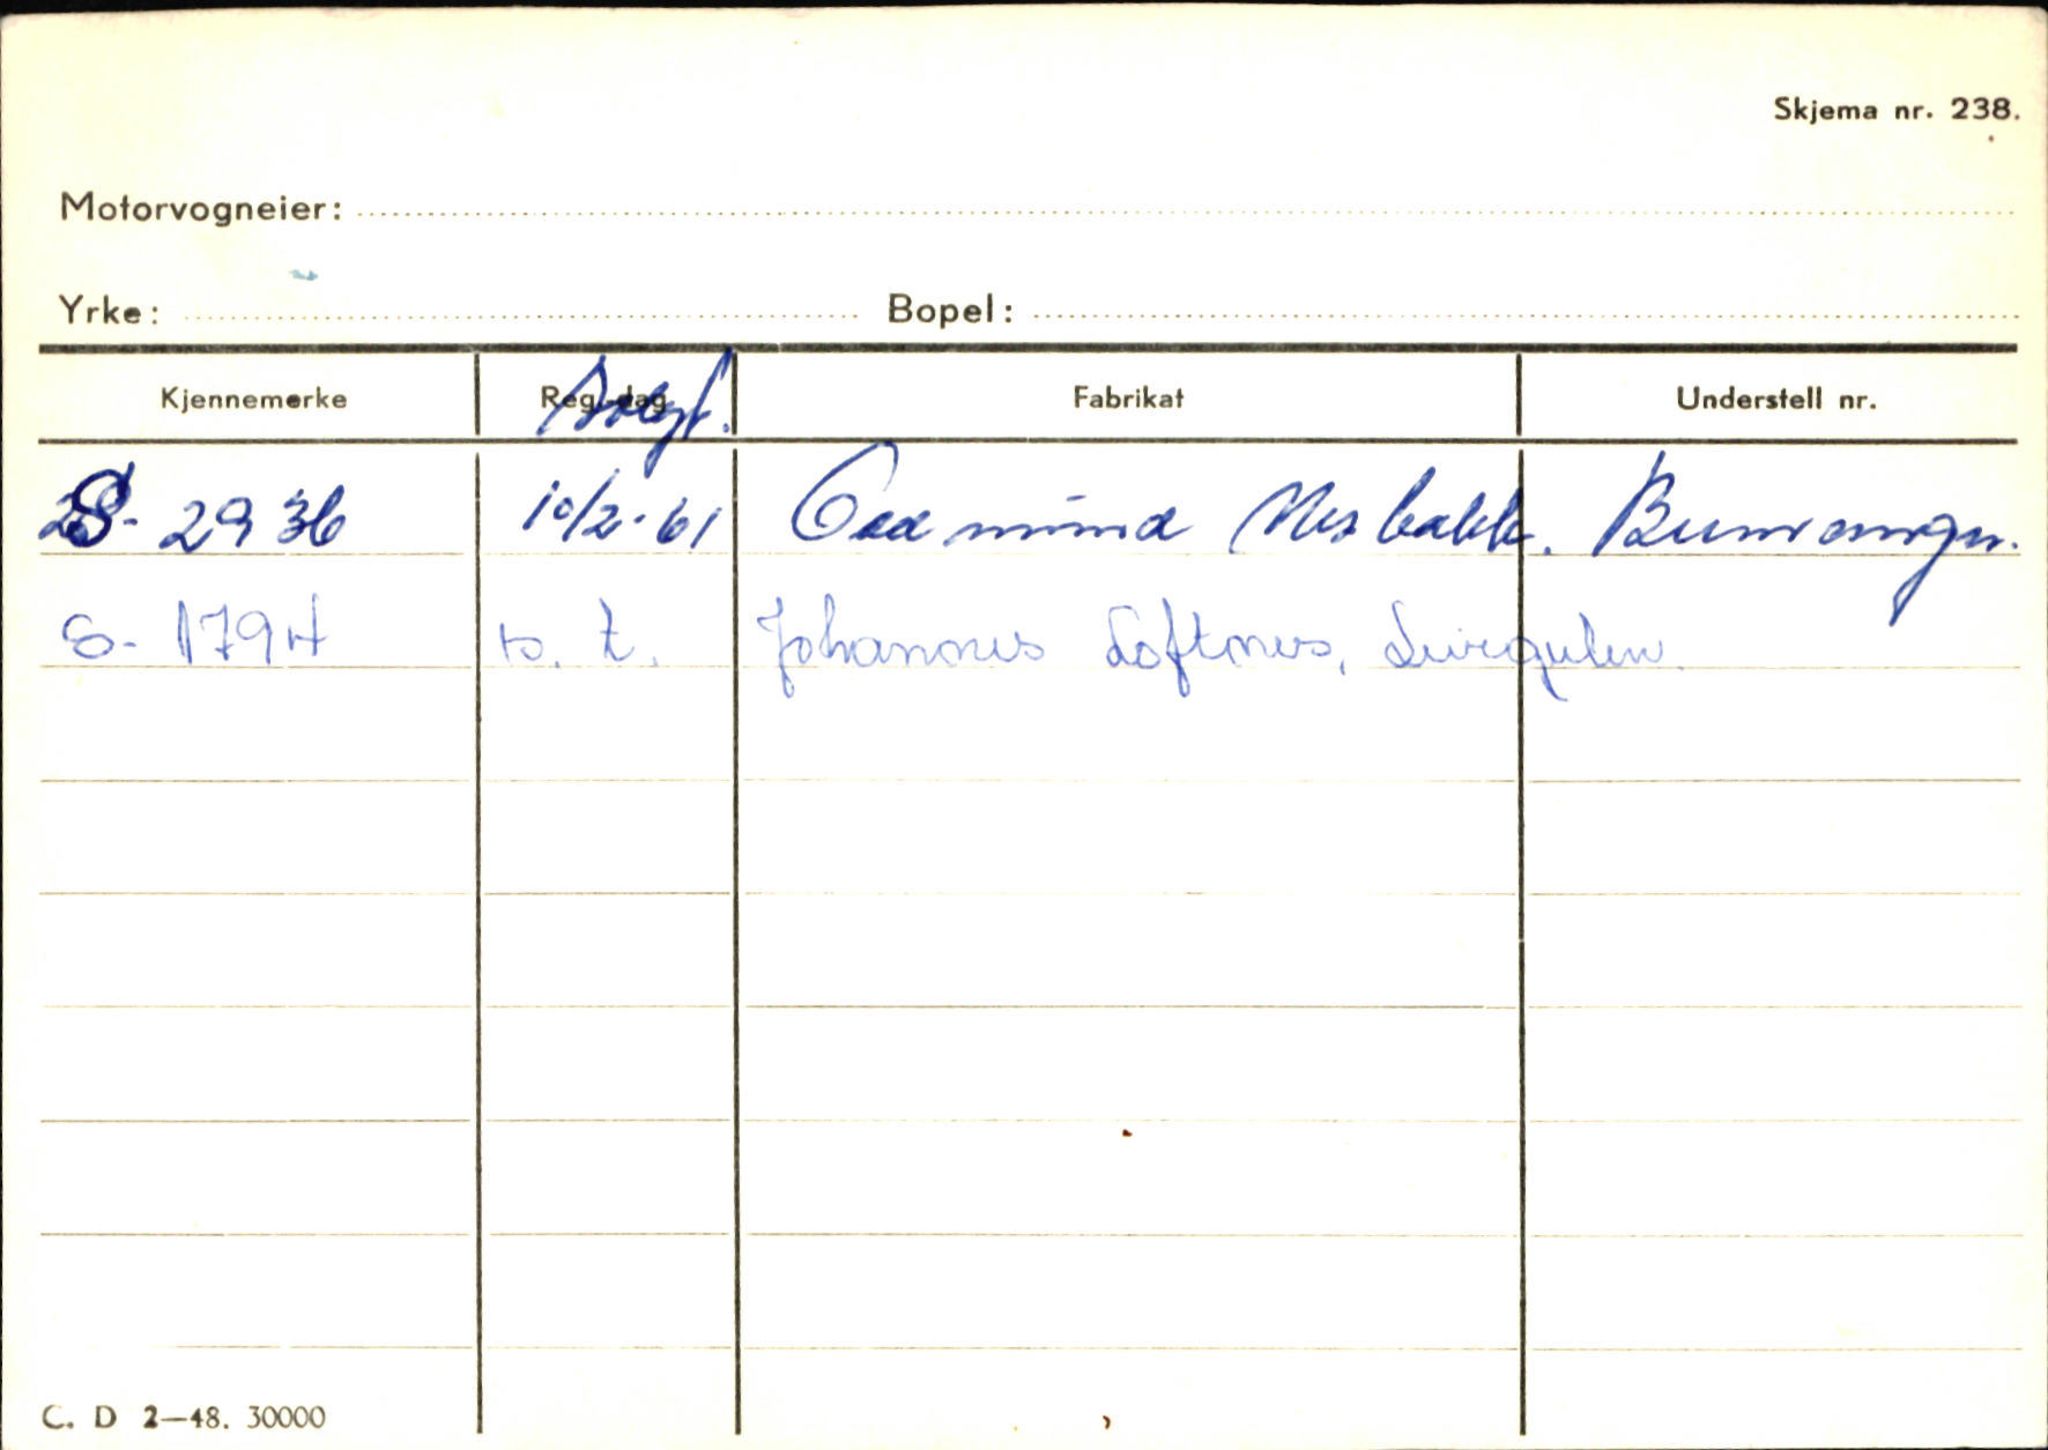 Skjema nr. 238.
Motorvogneier:
Yrke: Bopel:
Kjennemerke Reg.-dag Fabrikat Understell nr.
Solgt.
S- 2936 10/2-61 Oddmund Nesbakk. Bremanger.
S- 1794 s. t. Johannes Loftnes, Svelgen.
C. D 2—48. 30000